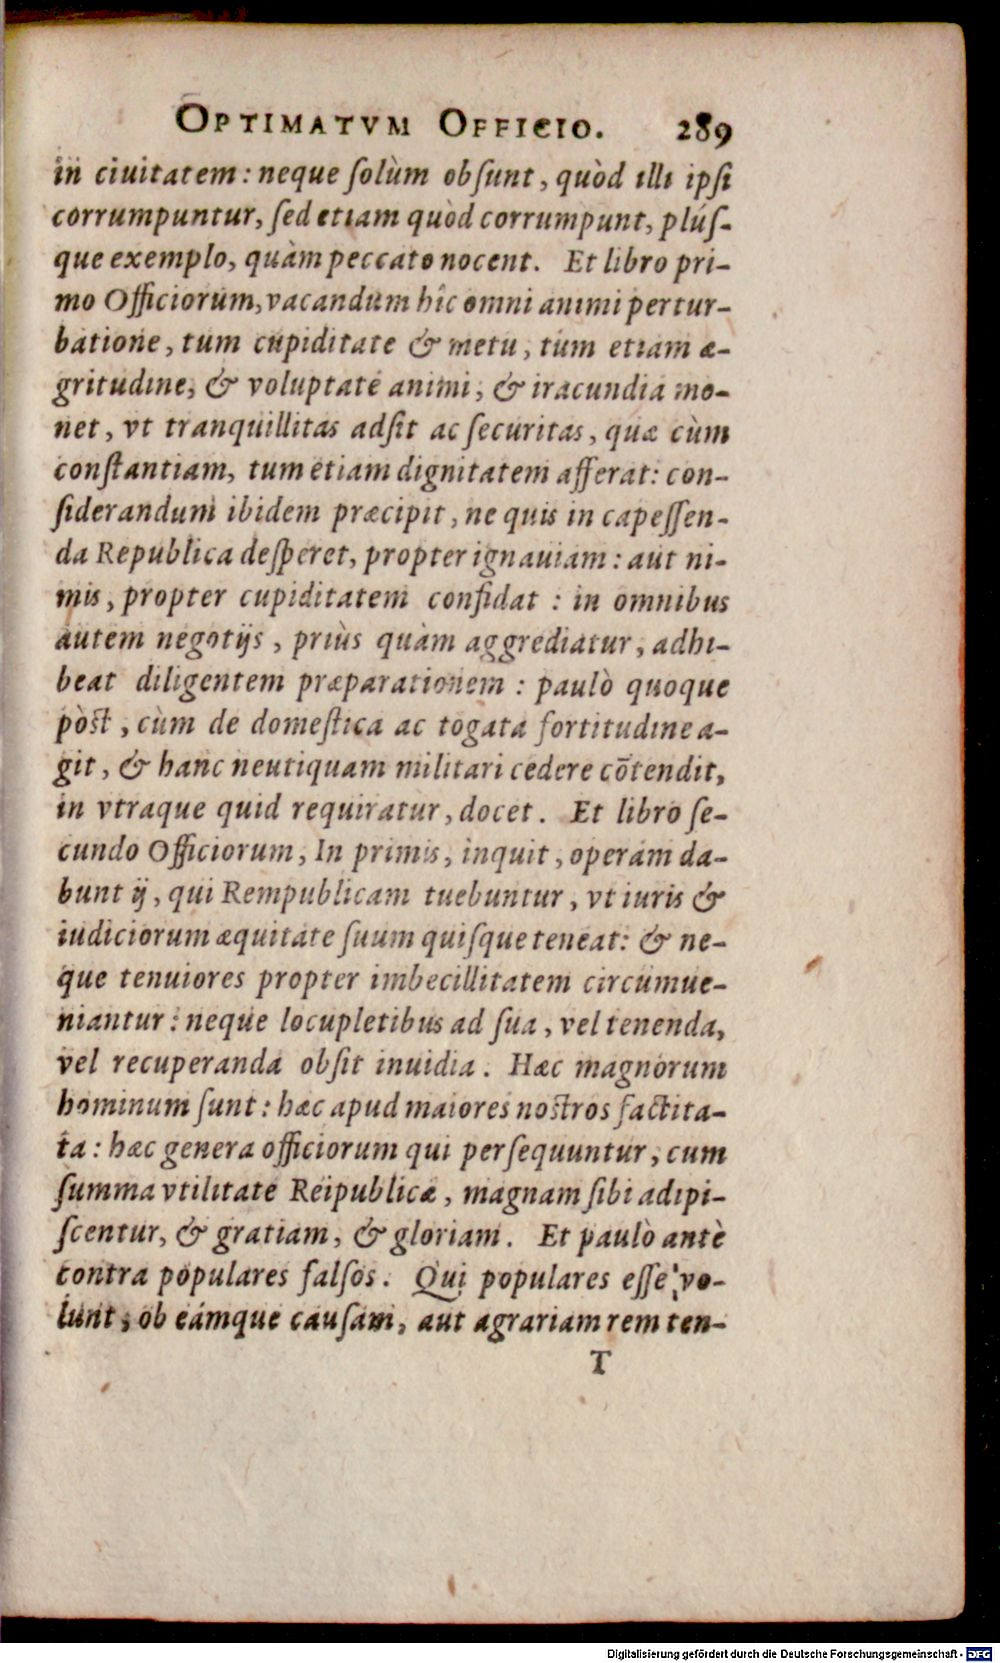 OPTIMATVM OFFICIO. 289
in ciuitatem: neque ſolùm obſunt, quòd illi ipſi
corrumpuntur, ſed etiam quòd corrumpunt, pluſ-
que exemplo, quàm peccato nocent. Et libro pri-
mo Officiorum, vacandum hîc omni animi pertur-
batione, tum cupiditate & metu, tum etiam æ-
gritudine, & voluptate animi, & iracundia mo-
net, vt tranquillitas adſit ac ſecuritas, quæ cùm
conſtantiam, tum etiam dignitatem afferat: con-
ſiderandum ibidem præcipit, ne quis in capeſſen-
da Republica deſperet, propter ignauiam: aut ni-
mis, propter cupiditatem confidat: in omnibus
autem negotijs, priùs quàm aggrediatur, adhi-
beat diligentem præparationem: paulò quoque
pòst, cùm de domeſtica ac togata fortitudine a-
git, & hanc neutiquam militari cedere cōtendit,
in vtraque quid requiratur, docet. Et libro ſe-
cundo Officiorum, In primis, inquit, operam da-
bunt ij, qui Rempublicam tuebuntur, vt iuris &
iudiciorum æquitate ſuum quiſque teneat: & ne-
que tenuiores propter imbecillitatem circumue-
niantur: neque locupletibus ad ſua, vel tenenda,
vel recuperanda obſit inuidia. Hæc magnorum
hominum ſunt: hæc apud maiores nostros factita-
ta: hæc genera officiorum qui perſequuntur, cum
ſumma vtilitate Reipublicæ, magnam ſibi adipi-
ſcentur, & gratiam, & gloriam. Et paulò antè
contra populares falſos. Qui populares eſſe vo-
lunt, ob eámque cauſam, aut agrariam rem ten-
T
Digitalisierung gefördert durch die Deutsche Forschungsgemeinschaft - DFG